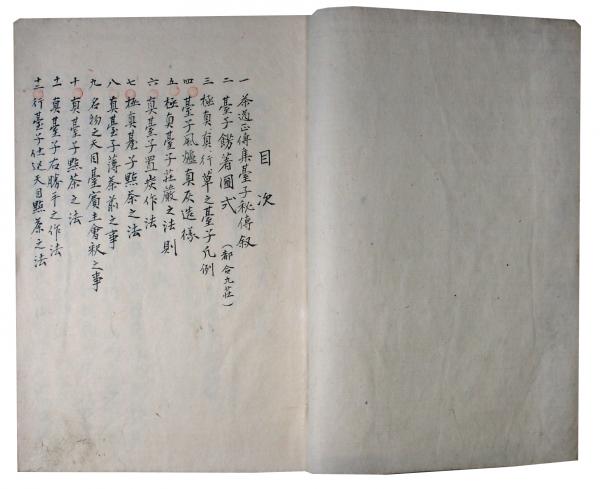 目次
一 茶道正傳集臺子秘傳叙
二 臺子餝著圖式（都合九莊）
三 極真真行草之臺子凡例
四 臺子風爐真灰造様
五 極真臺子莊嚴之法則
六 真臺子置炭作法
七 極真臺子點茶之法
八 真臺子薄茶前之事
九 名物之天目臺賓主會釈之事
十 真臺子點茶之法
十一 真臺子右勝手之作法
十二 行臺子仕述天目點茶之法